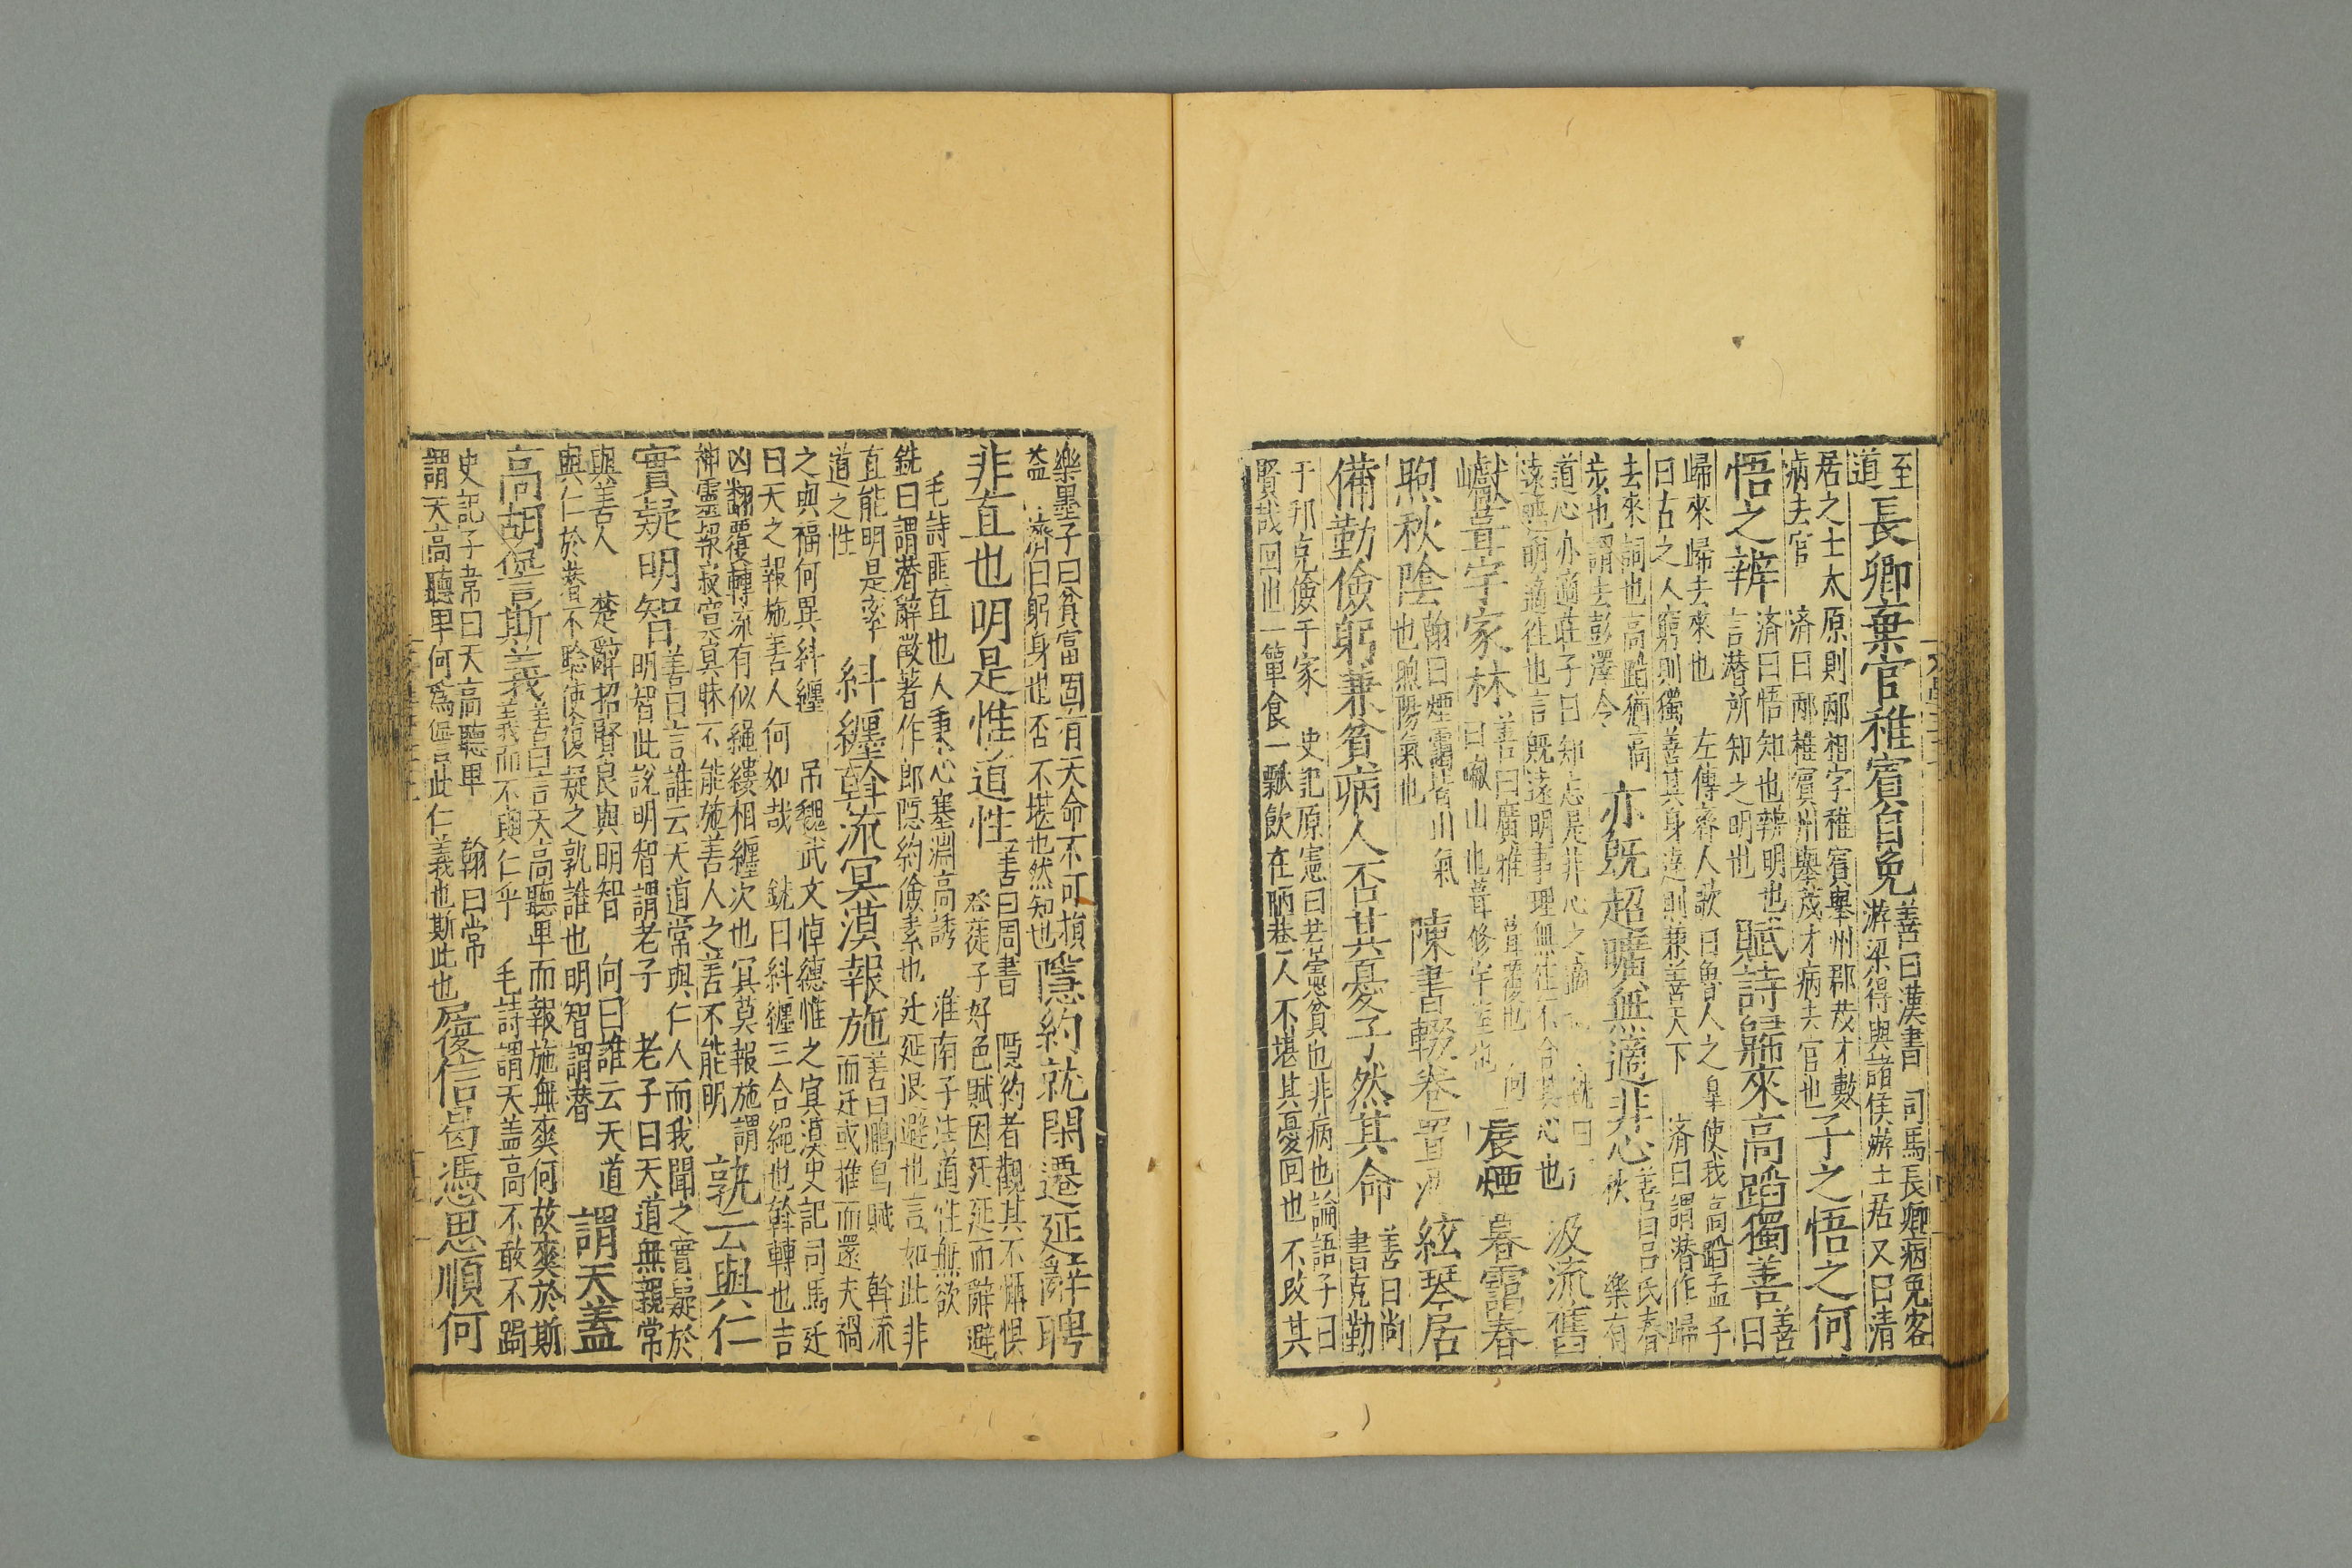 至
道
長卿棄官稚賓自免
善曰漢書 司馬長卿病免客
游梁得與諸侯游士居又曰清
居之士太原則郇相字稚賓舉州郡茂才數
病去官 済曰郇稚賓州舉茂才病去官也
子之悟之何
悟之辨
済曰悟知也辨明也
言潜所知之明也
賦詩歸來高蹈獨善
善
曰
歸來歸去來也 左傳齊人歌曰魯人之皐使我高蹈孟子
曰古之人窮則獨善其身達則兼善天下 済曰謂潜作歸
去來詞也高蹈猶高
步也謂去彭澤令
亦既超曠無適非心
善曰吕氏春
秋 樂有
道心亦適莊子曰知忘是非心之適 銑曰
遠 明適往也言既遠明事理無往不合其心也
汲流舊
巘葺宇家林
善曰廣雅 葺覆也 向
曰巘山也葺修宇室也
晨煙暮靄春
煦秋陰
翰曰煙靄皆山氣
也煦陽氣也
陳書輟卷置酒絃琴居
備勤儉躬兼貧病人否其憂子然其命
善曰尚
書克勤
于邦克儉于家 史記原憲曰若憲貧也非病也論語子曰
賢哉回也一簞食一瓢飲在陋巷人不堪其憂回也不改其
樂墨子曰貧富固有天命不可損
益 濟曰躬身也否不堪也然知也
隱約就閑遷延辭聘
非直也明是惟道性
善曰周書 隱約者觀其不懾懼
登徒子好色賦因迁延而辭避
毛詩匪直也人秉心塞淵高誘 淮南子注道性無欲
銑曰謂潜辭徵著作郎隱約儉素也迁延退避也言如此非
直能明是率
道之性
糾纆斡流冥漠報施
善曰鵩鳥賦 斡流
而迁或推而還夫禍
之與福何異糾纆 吊魏武文悼繐惟之冥漠史記司馬迁
曰天之報施善人何如哉 銑曰糾纆三合繩也斡轉也吉
凶翻覆轉流有似繩縷相纏次也冥莫報施謂
神靈報寂冥冥昧不能施善人之善不能明
孰云與仁
實疑明智
善曰言誰云天道常與仁人而我聞之實疑於
明智此說明智謂老子 老子曰天道無親常
與善人 楚辭招賢良與明智 向曰誰云天道
與仁於潜不聡使復疑之孰誰也明智謂潜
謂天蓋
高胡諐斯義
善曰言天高聽卑而報施無爽何故爽於斯
義而不與仁乎 毛詩謂天盖高不敢不跼
史記子韋曰天高聽卑 翰曰常
謂天高聽卑何為諐此仁義也斯此也
履信曷憑思順何